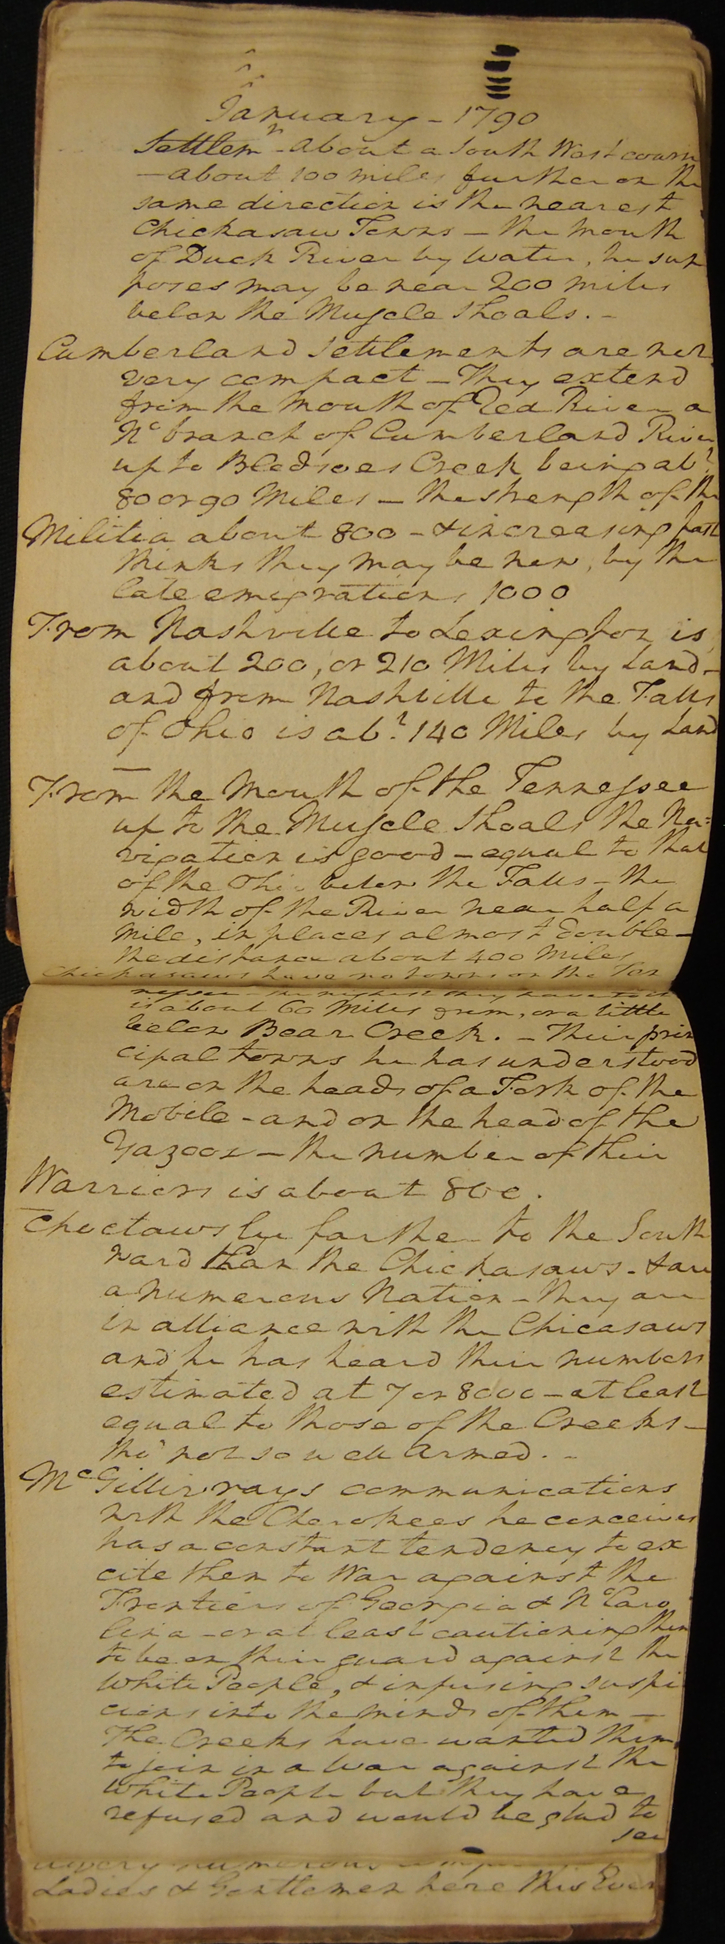 January - 1790
Settlemn - about a South West course
- about 100 miles further on the
same direction is the nearest
Chickasaw Towns - the mouth
of Duck River by water, he sup
poses may be near 200 miles
below the Muscle Shoals. -
Cumberland Settlements are not
very compact - They extend
from the Mouth of Red River a
No branch of Cumberland River
up to Bledsoes Creek being abt
80 or 90 Miles - the strength of the
Militia about 800 - & increasing fast
thinks they may be now, by the
late emigrations 1000
From Nashville to Lexington is
about 200, or 210 Miles by Land -
and from Nashville to the Falls
of Ohio is abt 140 Miles by Land
From the Mouth of the Tennessee
up to the Muscle Shoals the Na=
vigation is good - equal to that
of the Ohio below the Falls - the
width of the River near half a
Mile, in places almost double -
the distance about 400 Miles
Chickasaws have no towns on the Ten
nessee - the highest they have
is about 60 Miles from, or a little
below Bear Creek. - Their prin
cipal towns he has understood
are on the heads of a Fork of the
Mobile - and on the head of the
Yazoox - the number of their
Warriors is about 800.
Choctaws lye farther to the South
ward than the Chickasaws - & are
a numerous Nation - they are
in alliance with the Chicasaws
and he has heard their numbers
estimated at 7 or 8000 - at least
equal to those of the Creeks -
tho' not so well armed. -
McGillivrays communications
with the Cherokees he conceives
has a constant tendency to ex
cite them to War against the
Frontiers of Georgia & No Caro
lina - or at least cautioning them
to be on their guard against the
White People, & infusing suspi
cions into the minds of them -
The Creeks have wanted them
to join in a War against the
White People but they have
refused and would be glad to
see
a very numerous
Ladies & Gentlemen here this Even